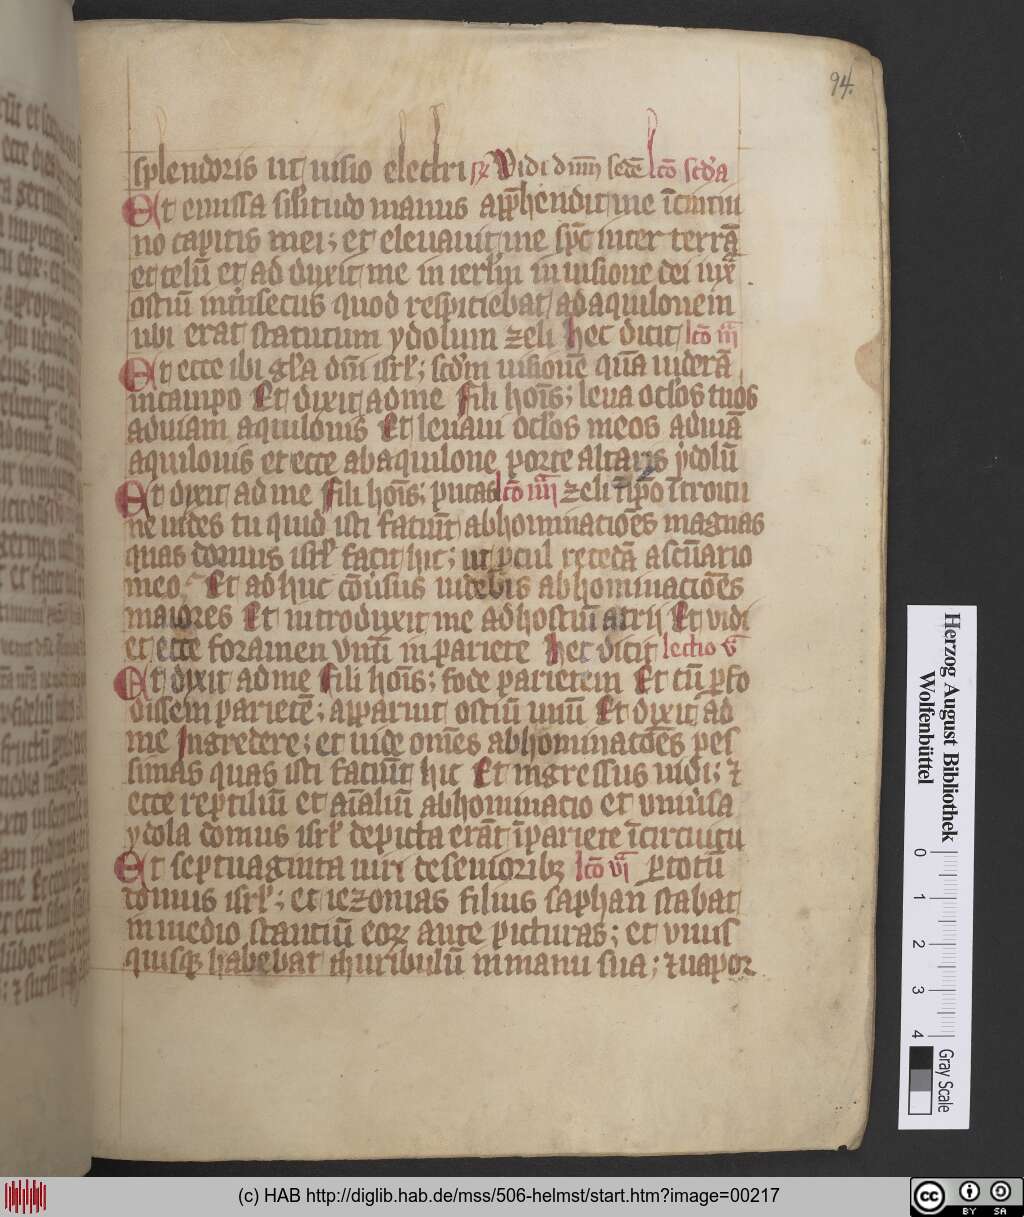 94.
splendoris ut uisio electri R̷ Vidi dnm̄ sedē lcō scd'a
Et emissa sił'itudo manus app̄hendit me ī cincin
no capitis mei; et eleuauit me sp̄c inter terrā
et celū et adduxit me in ierłm in uisione dei iux̄
ostiū int'insecus quod respiciebat ad aquilonem
ubi erat statutum ydolum zeli hec dicit lcō iij
Et ecce ibi gła dn̄i isrł; scd'm uisionē quā uiderā
in campo Et dixit ad me Fili hoīs; leua ocłos tuos
ad uiam aquilonis Et leuaui ocłos meos ad uiā
aquilonis et ecce ab aquilone porte altaris ydolū
Et dixit ad me Fili hoīs; putas lcō iiij zeli ī ip̄o ītroitu
ne uides tu quid isti faciūt abhominacioēs magnas
quas domus isrł facit hic; ut pcul recedā a scūario
meo. Et adhuc cōuersus uidebis abhominacioēs
maiores Et introduxit me ad hostiū atrij Et vidi
et ecce foramen vnū in pariete hec dicit lectio v̄
Et dixit ad me Fili hoīs; fode parietem Et cū pfo
dissem parietē; apparuit ostiū unū Et dixit ad
me Ingredere; et uide om̄es abhominatōēs pes
simas quas isti faciūt hic Et ingressus uidi; ⁊
ecce reptiliū et aīaliū abhominacio et vniu'sa
ydola domus isrł depicta erāt ī pariete ī circuitu
Et septuaginta uiri de seniorib; lcō vj ptotū
domus isrł; et iezonias filius saphan stabat
in medio stantiū eoꝝ ante picturas; et vnus
quisq; habebat thuribulū in manu sua; ⁊ uapor
Herzog August Bibliothek
Wolfenbüttel
0 1 2 3 4
Gray Scale
(c) HAB http://diglib.hab.de/mss/506-helmst/start.htm?image=00217
cc BY SA